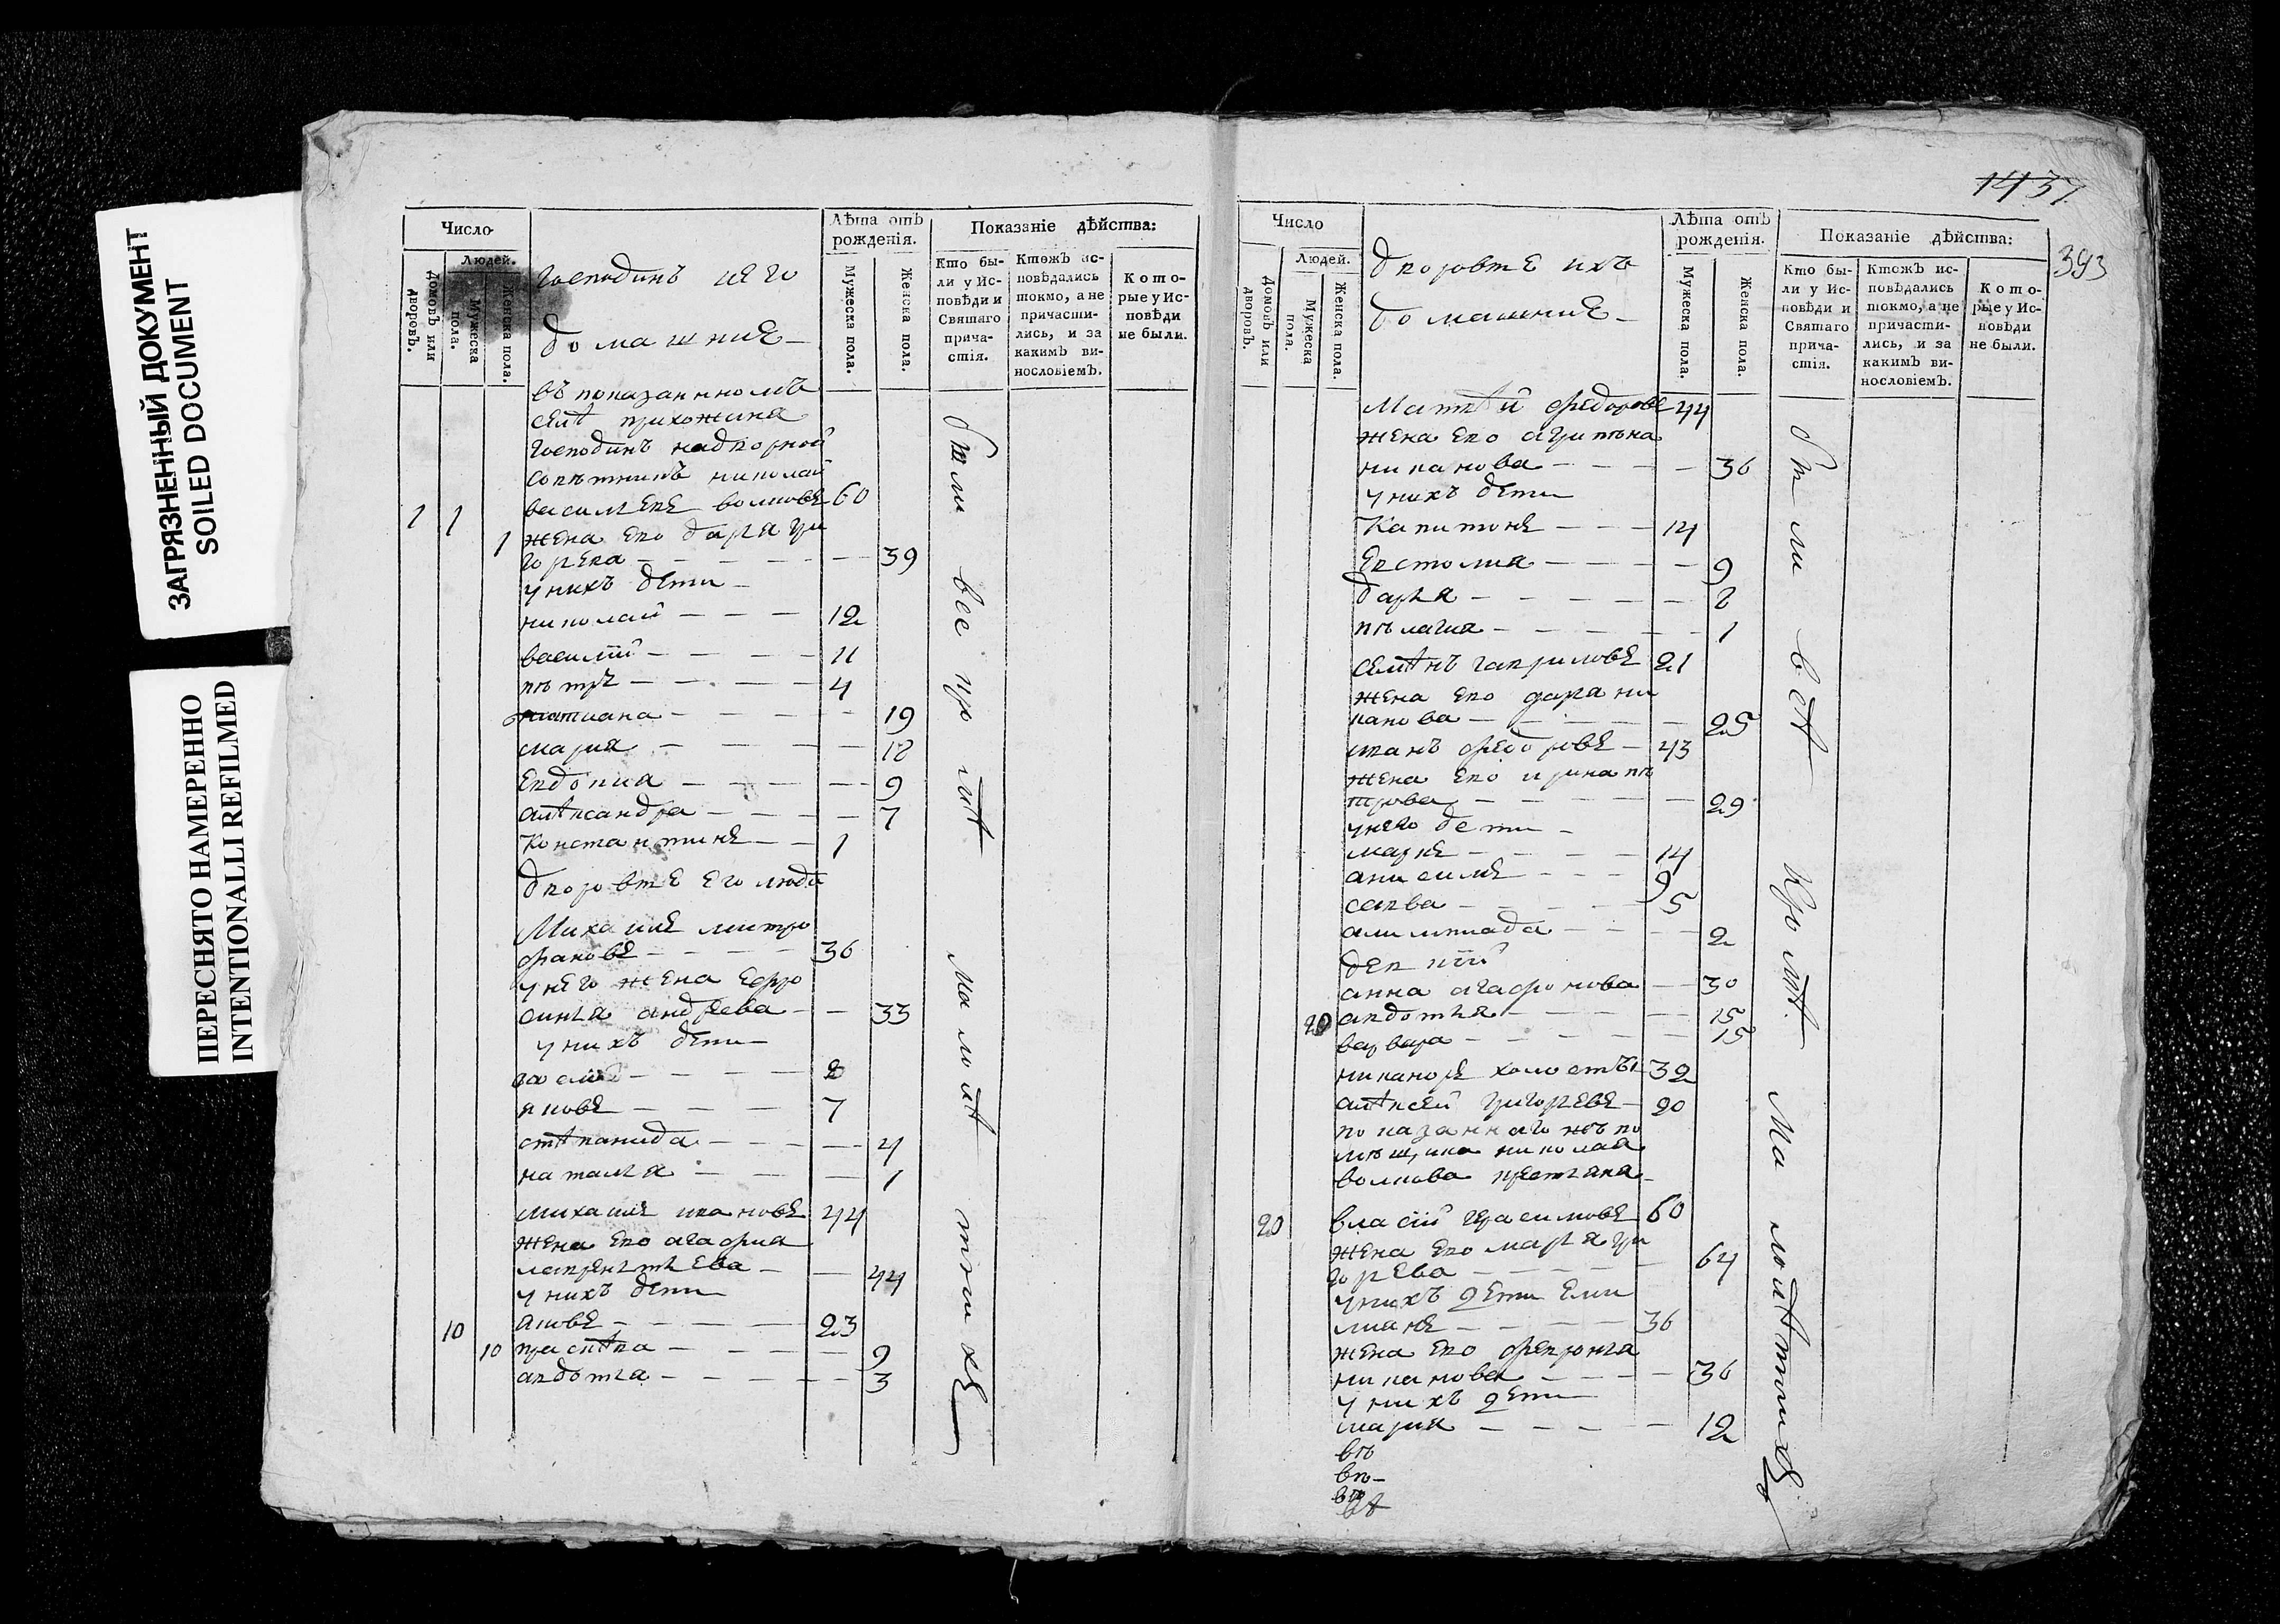 ЗАГРЯЗНЕННЫЙ ДОКУМЕНТ
SOILED DOCUMENT
ПЕРЕСНЯТО НАМЕРЕННО
INTENTIONALLI REFILMED
Число
Людей.
Домовъ или дворовъ.
Мужеска пола.
Женска пола.
господинъ и его
домашние
Лѣта отъ рожденія.
Мужеска пола.
Женска пола.
Показаніе дѣйства:
Кто были у Исповѣди и Святаго причастія.
Ктожъ исповѣдались токмо, а не причастились, и за какимъ винословіемъ.
Которые у Исповѣди не были.
въ показанномъ
селѣ прихожина
господинъ надворной
советникъ николай
1 1 василевъ волковъ 60
1 жена ево дарья гри
горева — 39
у нихъ дети —
николай — 12
василій — 11
петръ — 4
татиана — 19
мария — 18
евдокиа — 9
алѣксандра — 7
Константинъ — 1
дворовые его люди
Михаилъ митро
фановъ — 36
у него жена ефро
синья андреева — 33
у нихъ дети —
— 8
яковъ — 7
стѣпанида — 4
наталья — 1
михаилъ ивановъ 44
жена ево агафиа
лаврентьева — 44
у нихъ дети
10 яковъ — 23
10 прасковѣя — 9
авдотья — 3
были все при малолѣтныхъ
1437
393
Число
Людей.
Домовъ или дворовъ.
Мужеска пола.
Женска пола.
дворовые ихъ
домашние —
Лѣта отъ рожденія.
Мужеска пола.
Женска пола.
Показаніе дѣйства:
Кто были у Исповѣди и Святаго причастія.
Ктожъ исповѣдались токмо, а не причастились, и за какимъ винословіемъ.
Которые у Исповѣди не были.
Матвѣй федоровъ 44
жена ево агрипена
иванова — 36
у нихъ дети
Капитонъ — 14
Евстолия — 9
дарья — 2
пелагия — 1
семѣнъ гавриловъ 21
жена ево дарья и
ванова — 25
иванъ федоровъ — 43
жена ево ирина пе
трова — 29
у него дети —
маркъ — 14
анисимъ — 9
савва — 5
алимпиада — 2
девкій
анна агафонова — 30
20 авдотья — 15
варвара — 15
никаноръ холостъ 32
алѣксей григоревъ — 20
показаннаго же по
мещика николая
волкова крестьяна
20 власій герасимовъ 60
жена ево марья гри
горева — 64
у нихъ дети еми
лианъ — 36
жена ево февронья
иванова — 36
у нихъ дети
мария — 12
въ
въ —
были всѣ кромѣ малолѣтныхъ